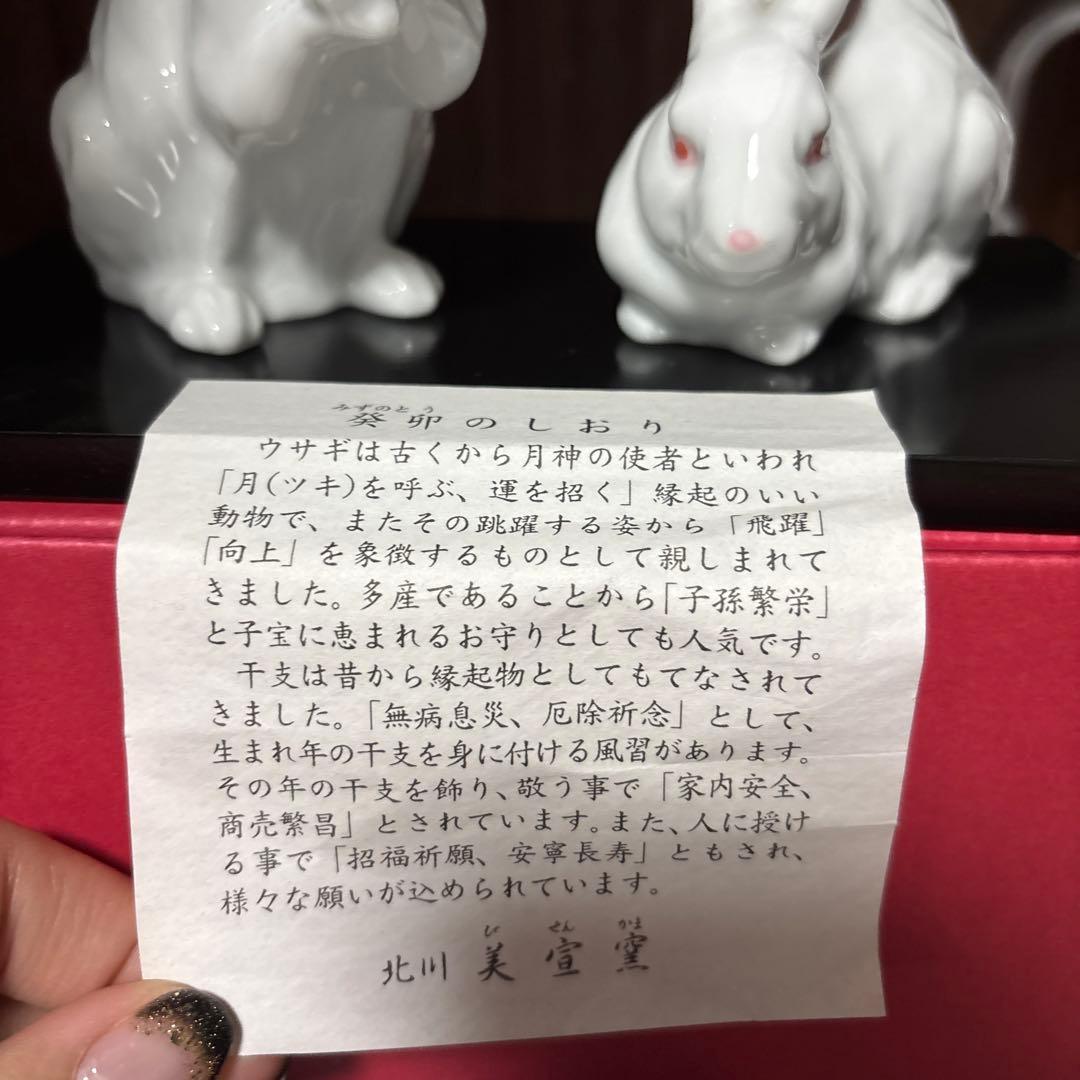 みずのとう
癸卯のしおり
ウサギは古くから月神の使者といわれ
「月(ツキ)を呼ぶ、運を招く」縁起のいい
動物で、またその跳躍する姿から「飛躍」
「向上」を象徴するものとして親しまれて
きました。多産であることから「子孫繁栄」
と子宝に恵まれるお守りとしても人気です。
干支は昔から縁起物としてもてなされて
きました。「無病息災、厄除祈念」として、
生まれ年の干支を身に付ける風習があります。
その年の干支を飾り、敬う事で「家内安全、
商売繁昌」とされています。また、人に授け
る事で「招福祈願、安寧長寿」ともされ、
様々な願いが込められています。
び せん かま
北川 美宣窯